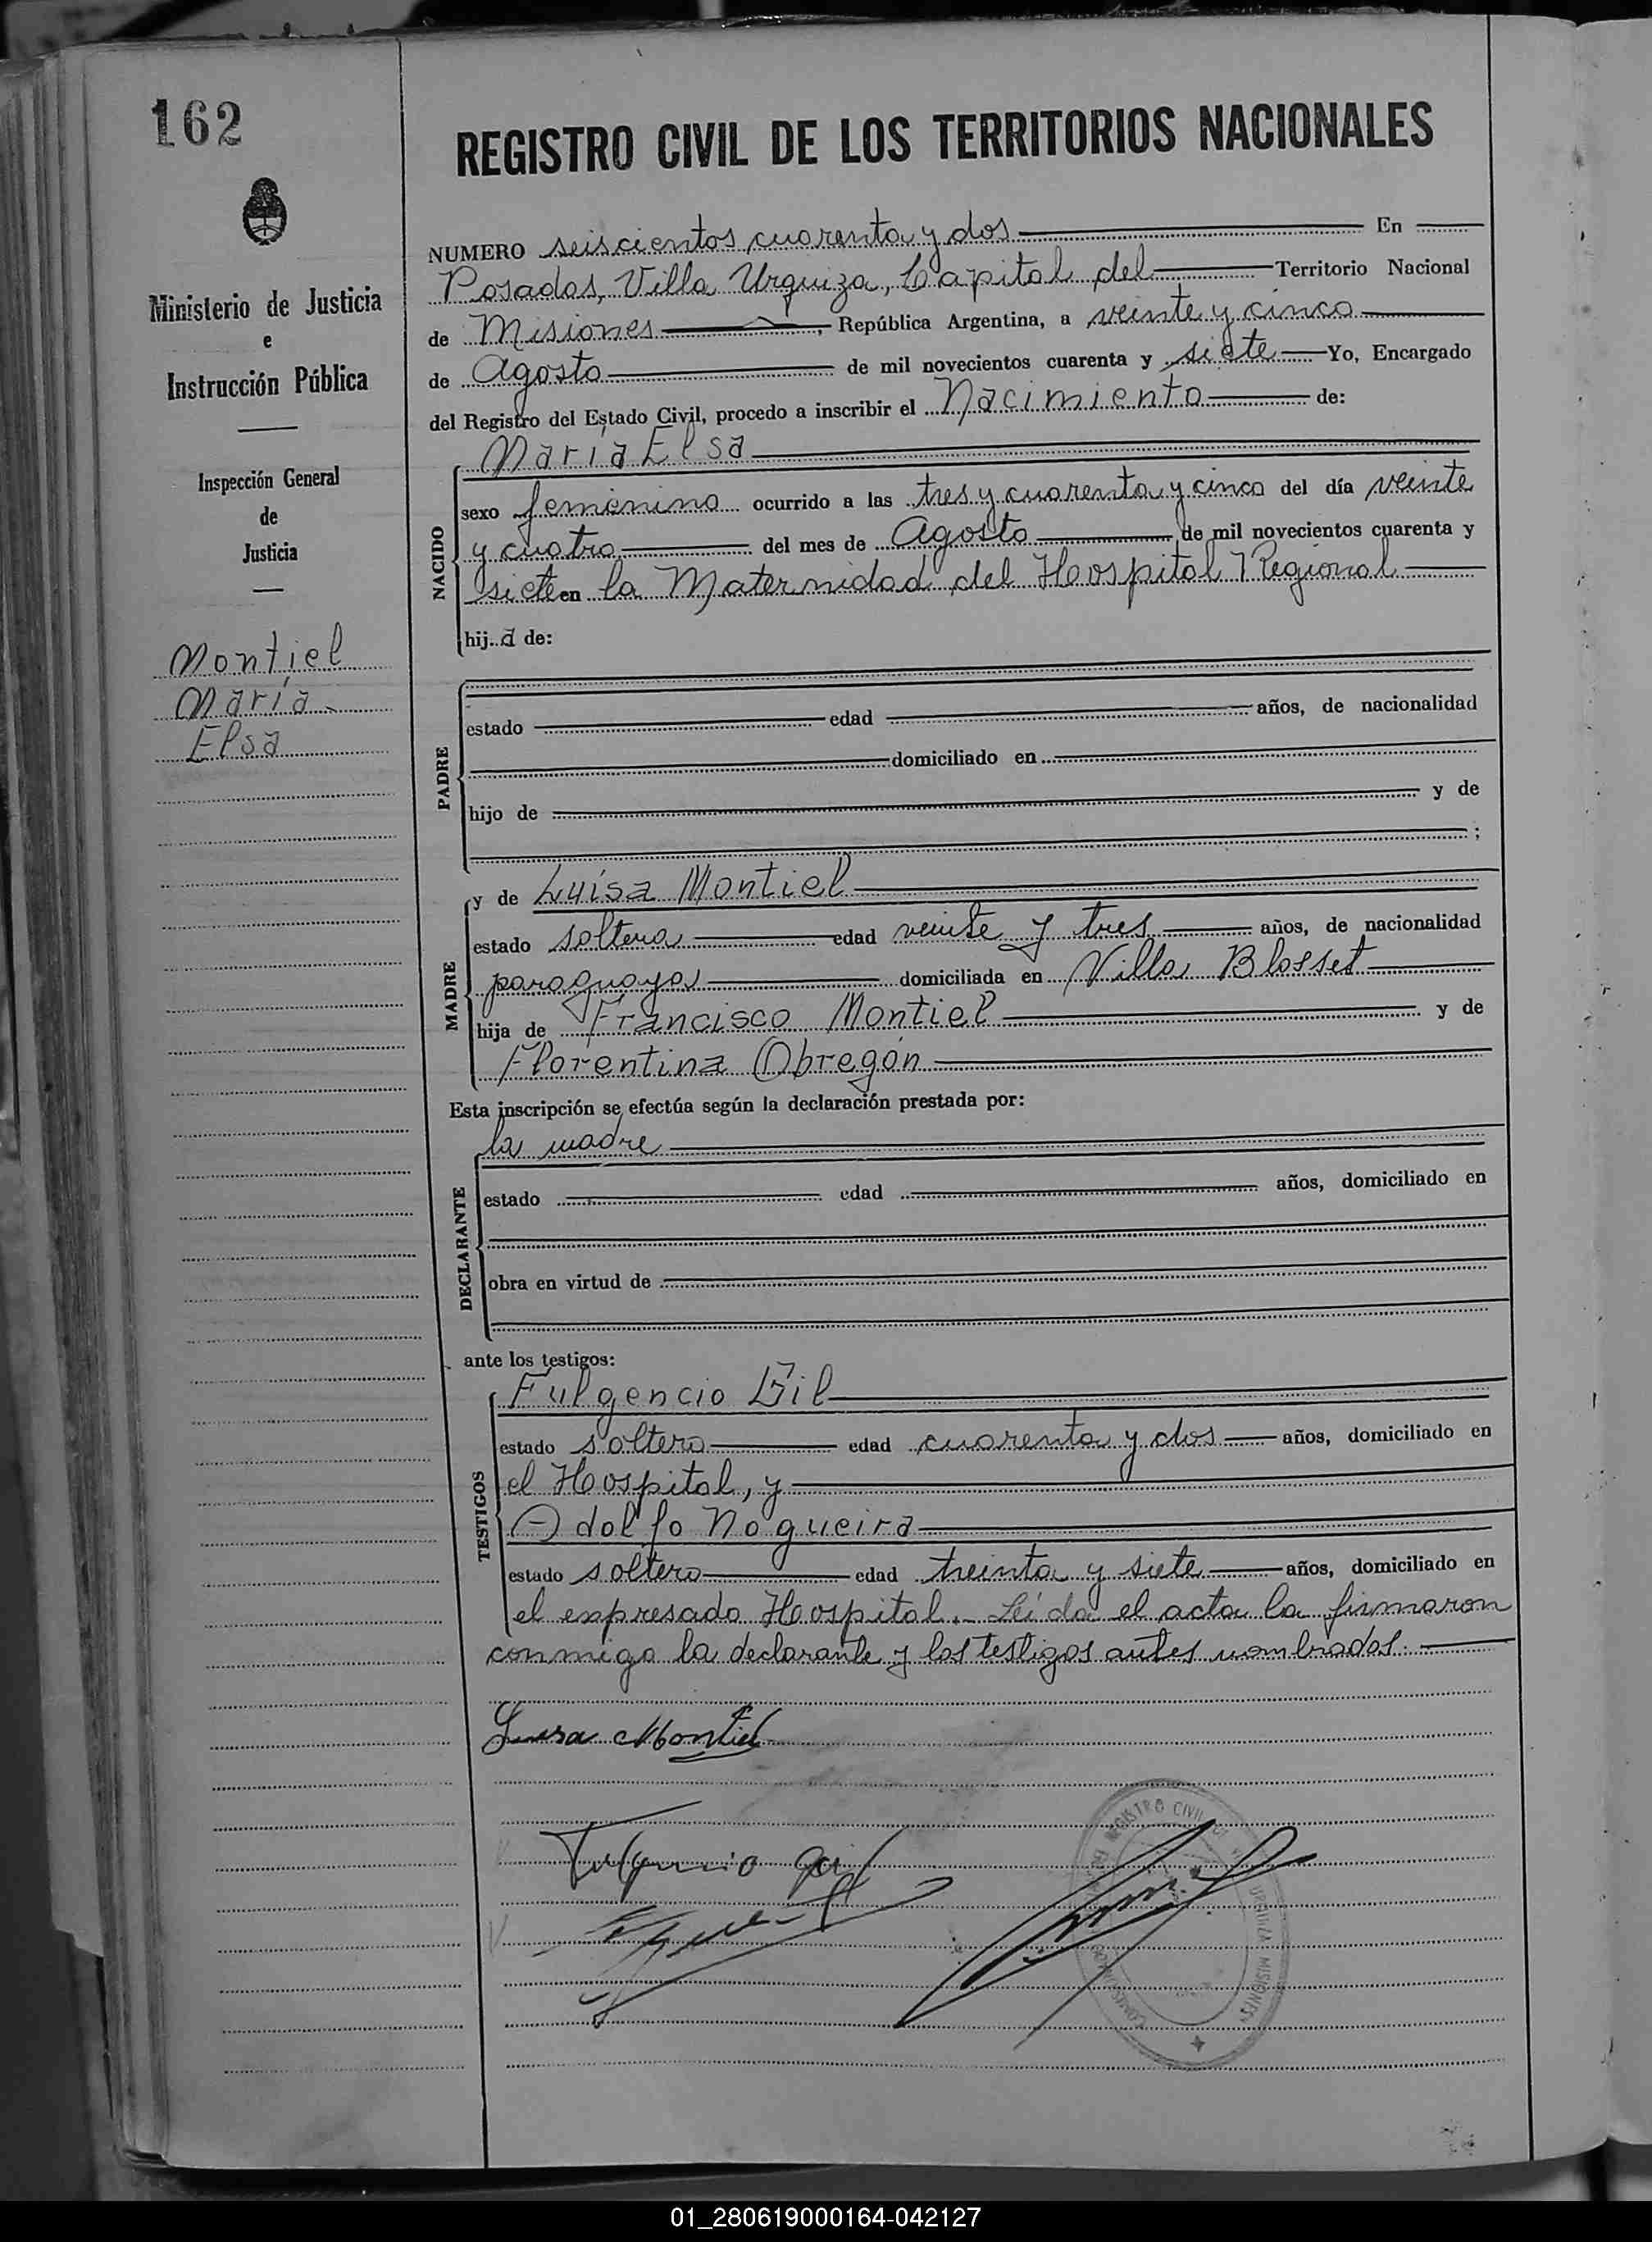 162
REGISTRO CIVIL DE LOS TERRITORIOS NACIONALES
Ministerio de Justicia
e
Instrucción Pública
Inspección General
de
Justicia
Montiel
María
Elsa
NUMERO seiscientos cuarenta y dos En
Posadas, Villa Urquiza, Capital del Territorio Nacional
de Misiones, República Argentina, a veinte y cinco
de Agosto de mil novecientos cuarenta y siete Yo, Encargado
del Registro del Estado Civil, procedo a inscribir el Nacimiento de:
NACIDO
María Elsa
sexo femenino ocurrido a las tres y cuarenta y cinco del día veinte
y cuatro del mes de Agosto de mil novecientos cuarenta y
siete en la Maternidad del Hospital Regional
hija de:
PADRE
estado edad años, de nacionalidad
domiciliado en
hijo de y de
;
MADRE
y de Luísa Montiel
estado soltera edad veinte y tres años, de nacionalidad
paraguaya domiciliada en Villa Blosset
hija de Francisco Montiel y de
Florentina Obregón
Esta inscripción se efectúa según la declaración prestada por:
DECLARANTE
la madre
estado edad años, domiciliado en
obra en virtud de
ante los testigos:
TESTIGOS
Fulgencio Gil
estado soltero edad cuarenta y dos años, domiciliado en
el Hospital, y
Adolfo Nogueira
estado soltero edad treinta y siete años, domiciliado en
el expresado Hospital.- Leída el acta la firmaron
conmigo la declarante y los testigos antes nombrados.
Luisa Montiel
Fulgencio Gil
REGISTRO CIVIL
URQUIZA MISIONES
01_280619000164-042127